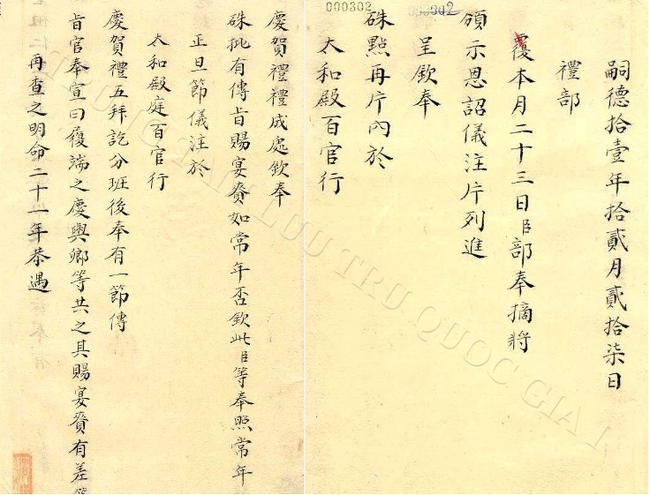 000302
000302
嗣德拾壹年拾貳月貳拾柒日
禮部
覆本月二十三日臣部奉摘將
頒示恩詔儀注片列進
呈欽奉
硃點再片內於
太和殿百官行
慶賀禮禮成處欽奉
硃批有傳旨賜宴賚如常年否欽此臣等奉照常年
正旦節儀注於
太和殿庭百官行
慶賀禮五拜訖分班後奉有一節傳
旨官奉宣曰履端之慶與鄉等共之具賜宴賚有差
再查之明命二十一年恭遇
TRUNG TÂM LƯU TRỮ QUỐC GIA I